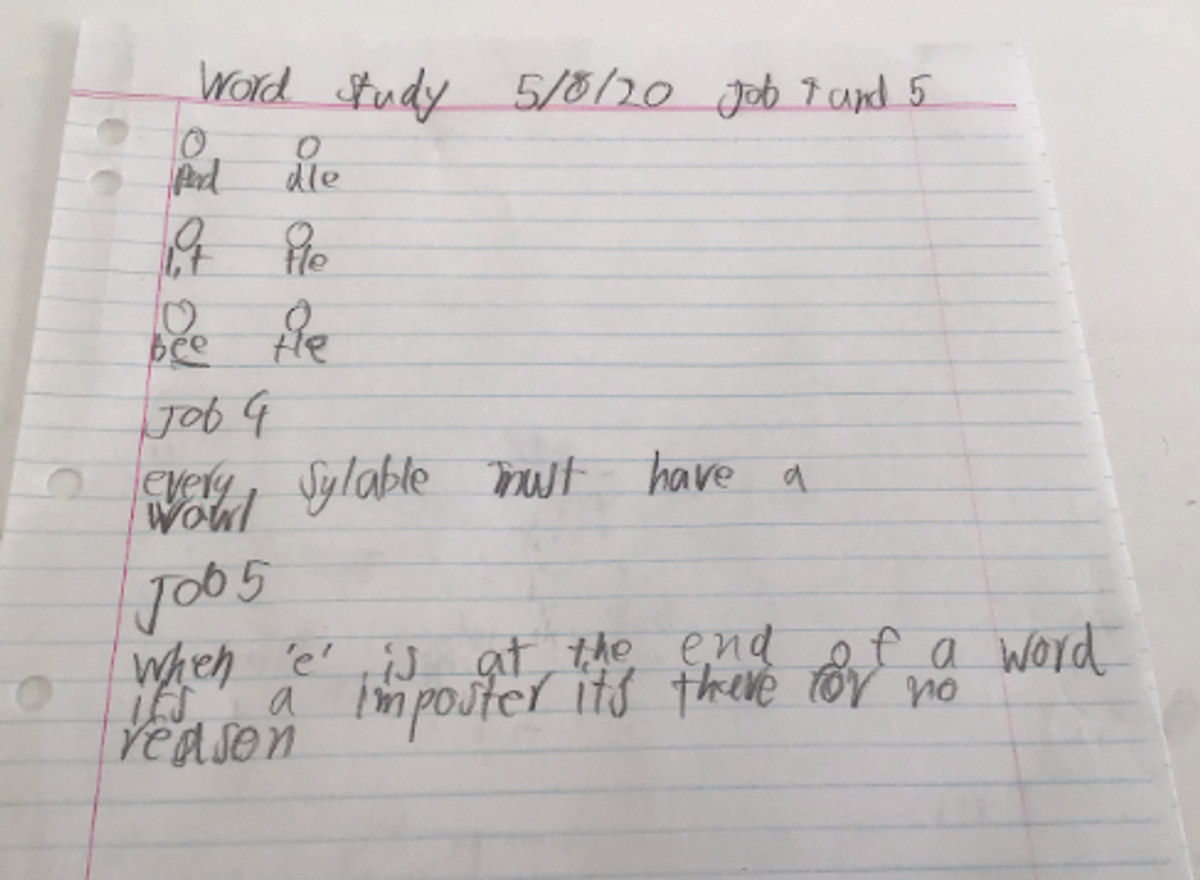 Word study 5/8/20 Job 4 and 5
Pad dle
lit tle
bee tle
Job 4
every sylable must have a
wowl
Job 5
When 'e' is at the end of a word
it's a imposter its there for no
reason